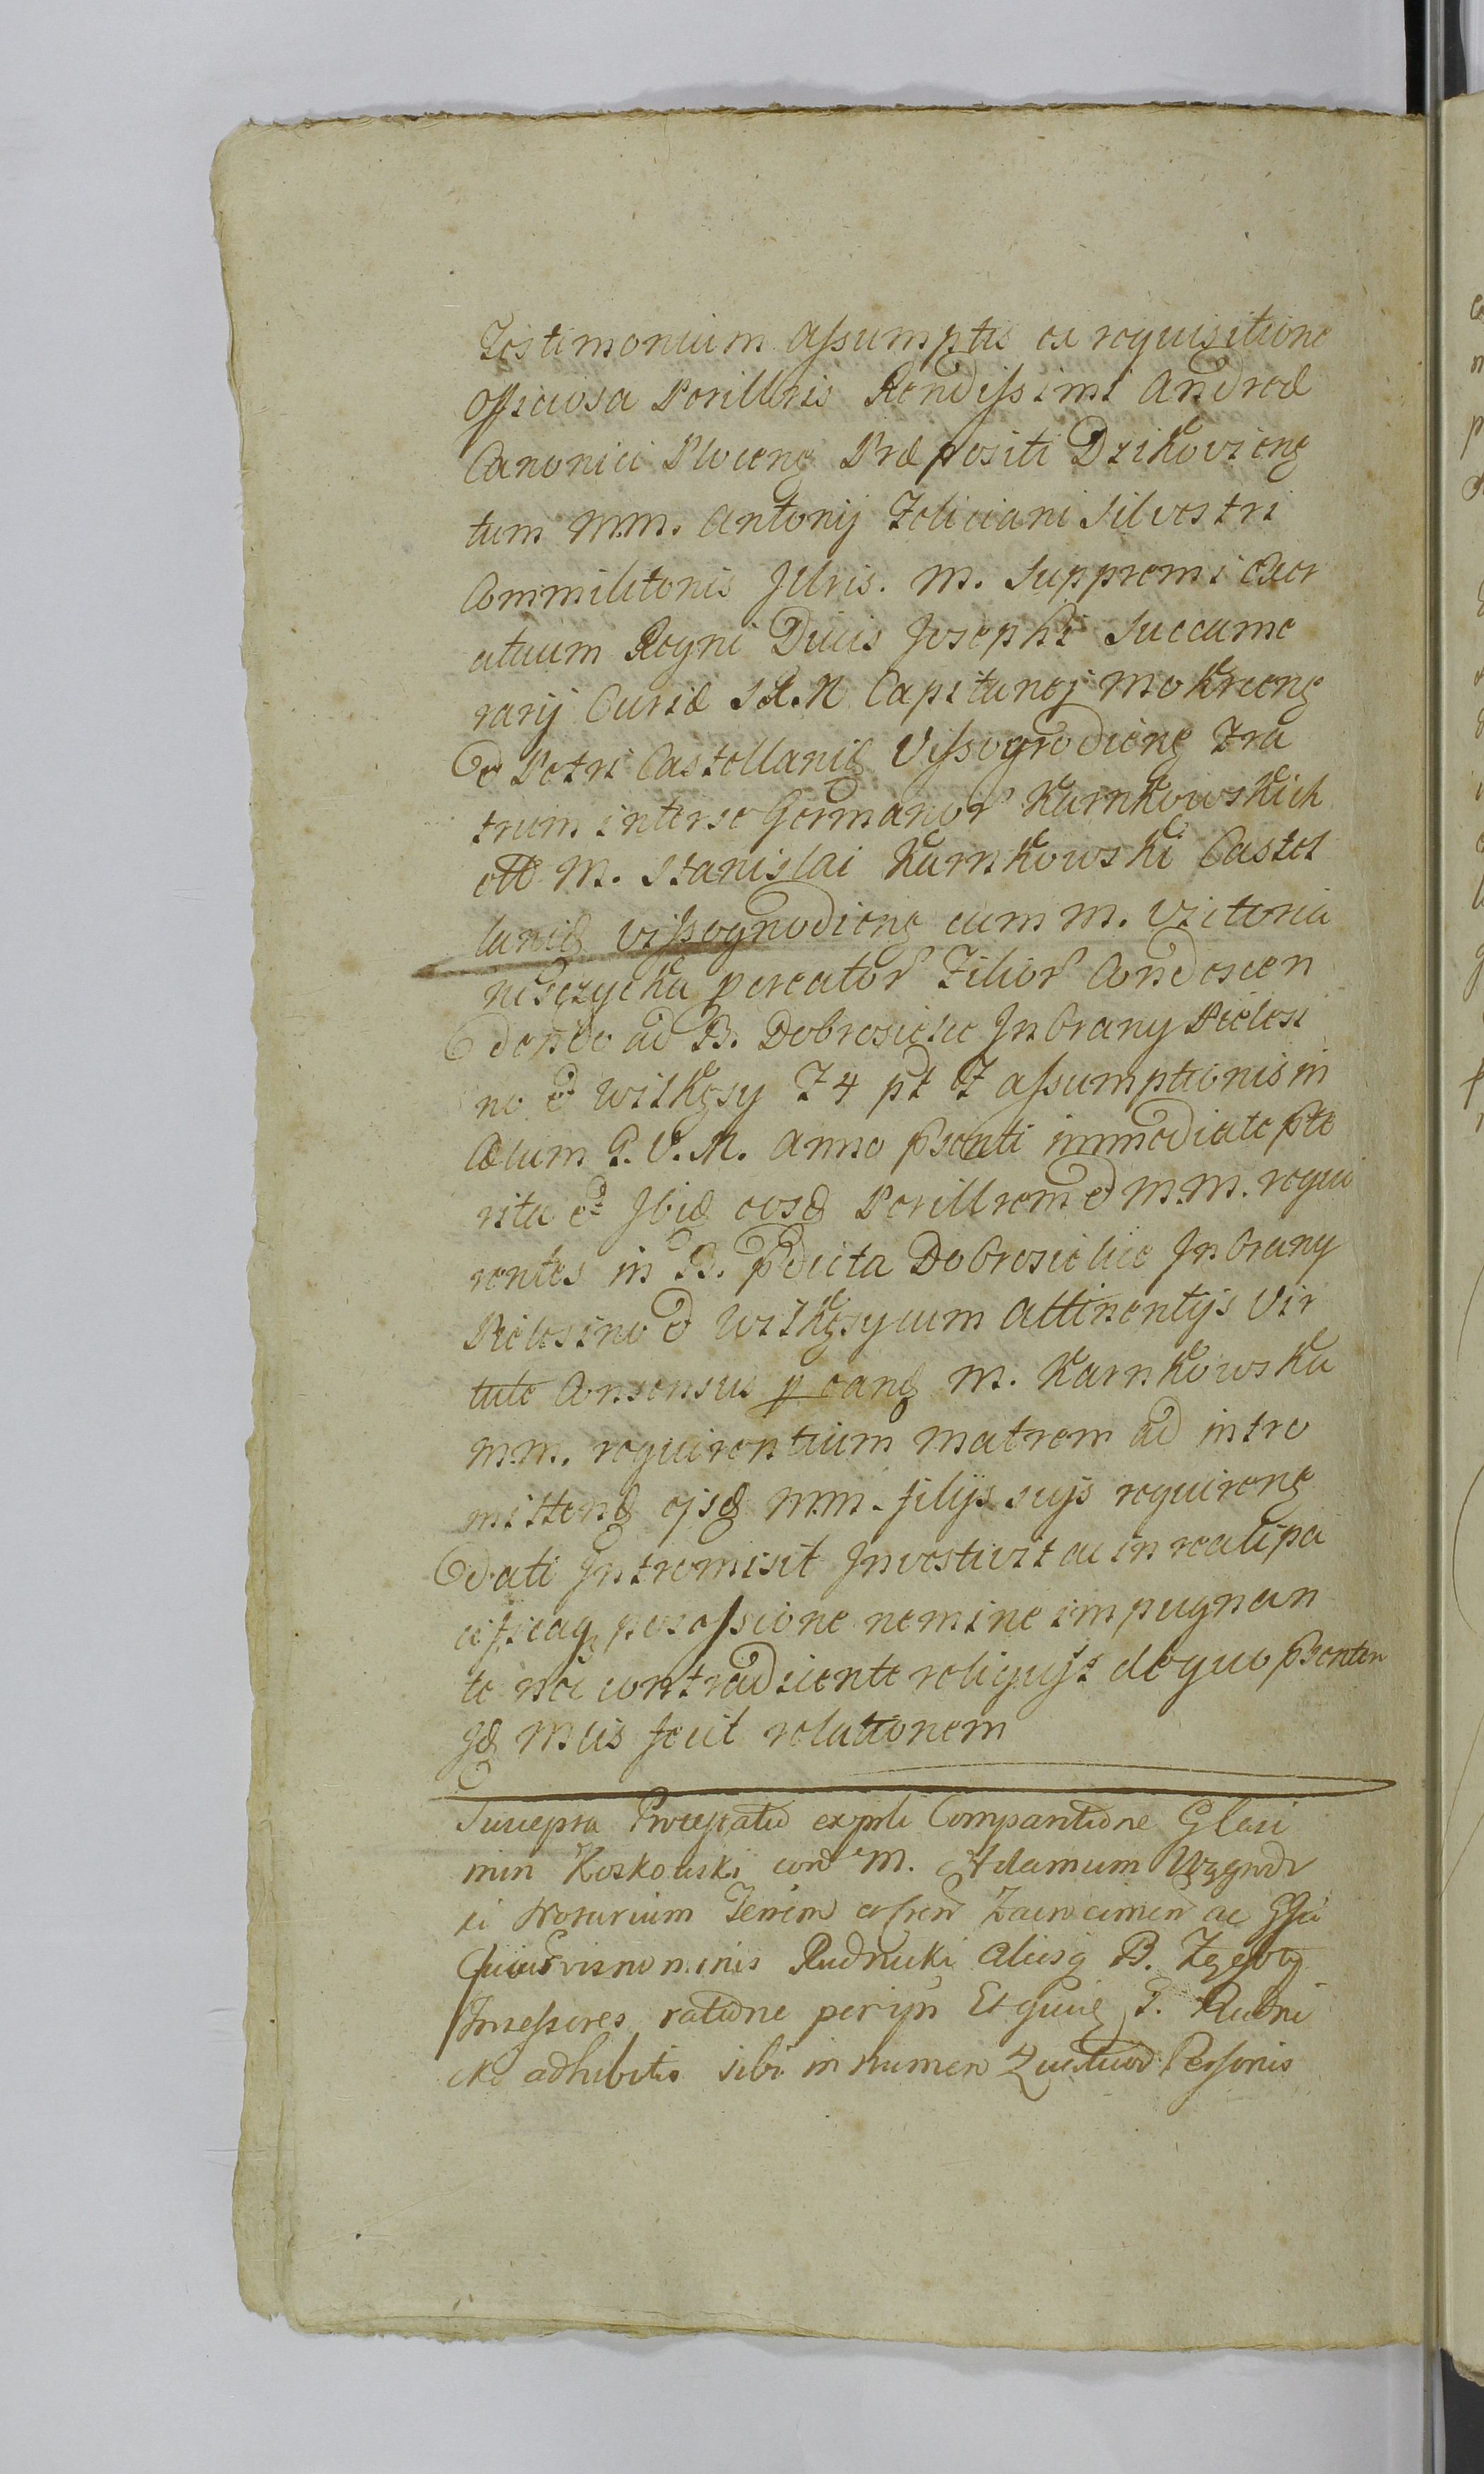 Testimonium assumptis ex requisitione
officiosa Perillris Rendissimi Andreæ
Canonici Plocens Præpositi Dzikoviens
tum M.M. Antonij Feliciani Silvestri
Commilitonis Jllris. M. Suppremi exer
cituum Regni Ducis Josephi Succame
rarij Curiæ S.R.M Capitanej Mokrcens
et Petri Castellanid Vissogrodiens Fra
trum interse Germanor Karnkowskich
olle M. Stanislai Karnkowski Castel
lanid vissogrodiens cum M. Victoria
niszczycka pereator Filior Condescen
dendo ad B. Dobrosielie Jnbrany Pielesi
no et Wilkęsy F 4 pt F assumptionis in
Cælum B.V.M. anno psenti immediate pte
rita et Jbid eosd Perillrem et M.M. requi
rentes in B. pdicta Dobrosielice Jnbrany
Pielesino et Wilkęsy cum attinentijs Vir
tute Consensus p eand M. Karnkowska
M.M. requirentium matrem ad intro
mittend ejsd M.M. filijs suis requirens
dati Jntromisit Jnvestivit ac in reali pa
cificaq posessione nemine impugnan
te nec contradicente reliquit de quo psenten
sd Mlis fecit relationem
Suscepta Protestatio exple Comparitione Glasi
min Koskowski con M. Adamum
ci Notarium Terrem castren Zawcrimen ac
Cuiusvis nominis Rudnicki aliasq B.
ratione per ipm Et quid G. Rudni
cki adhibitis sibi in numero Quatuor Personis